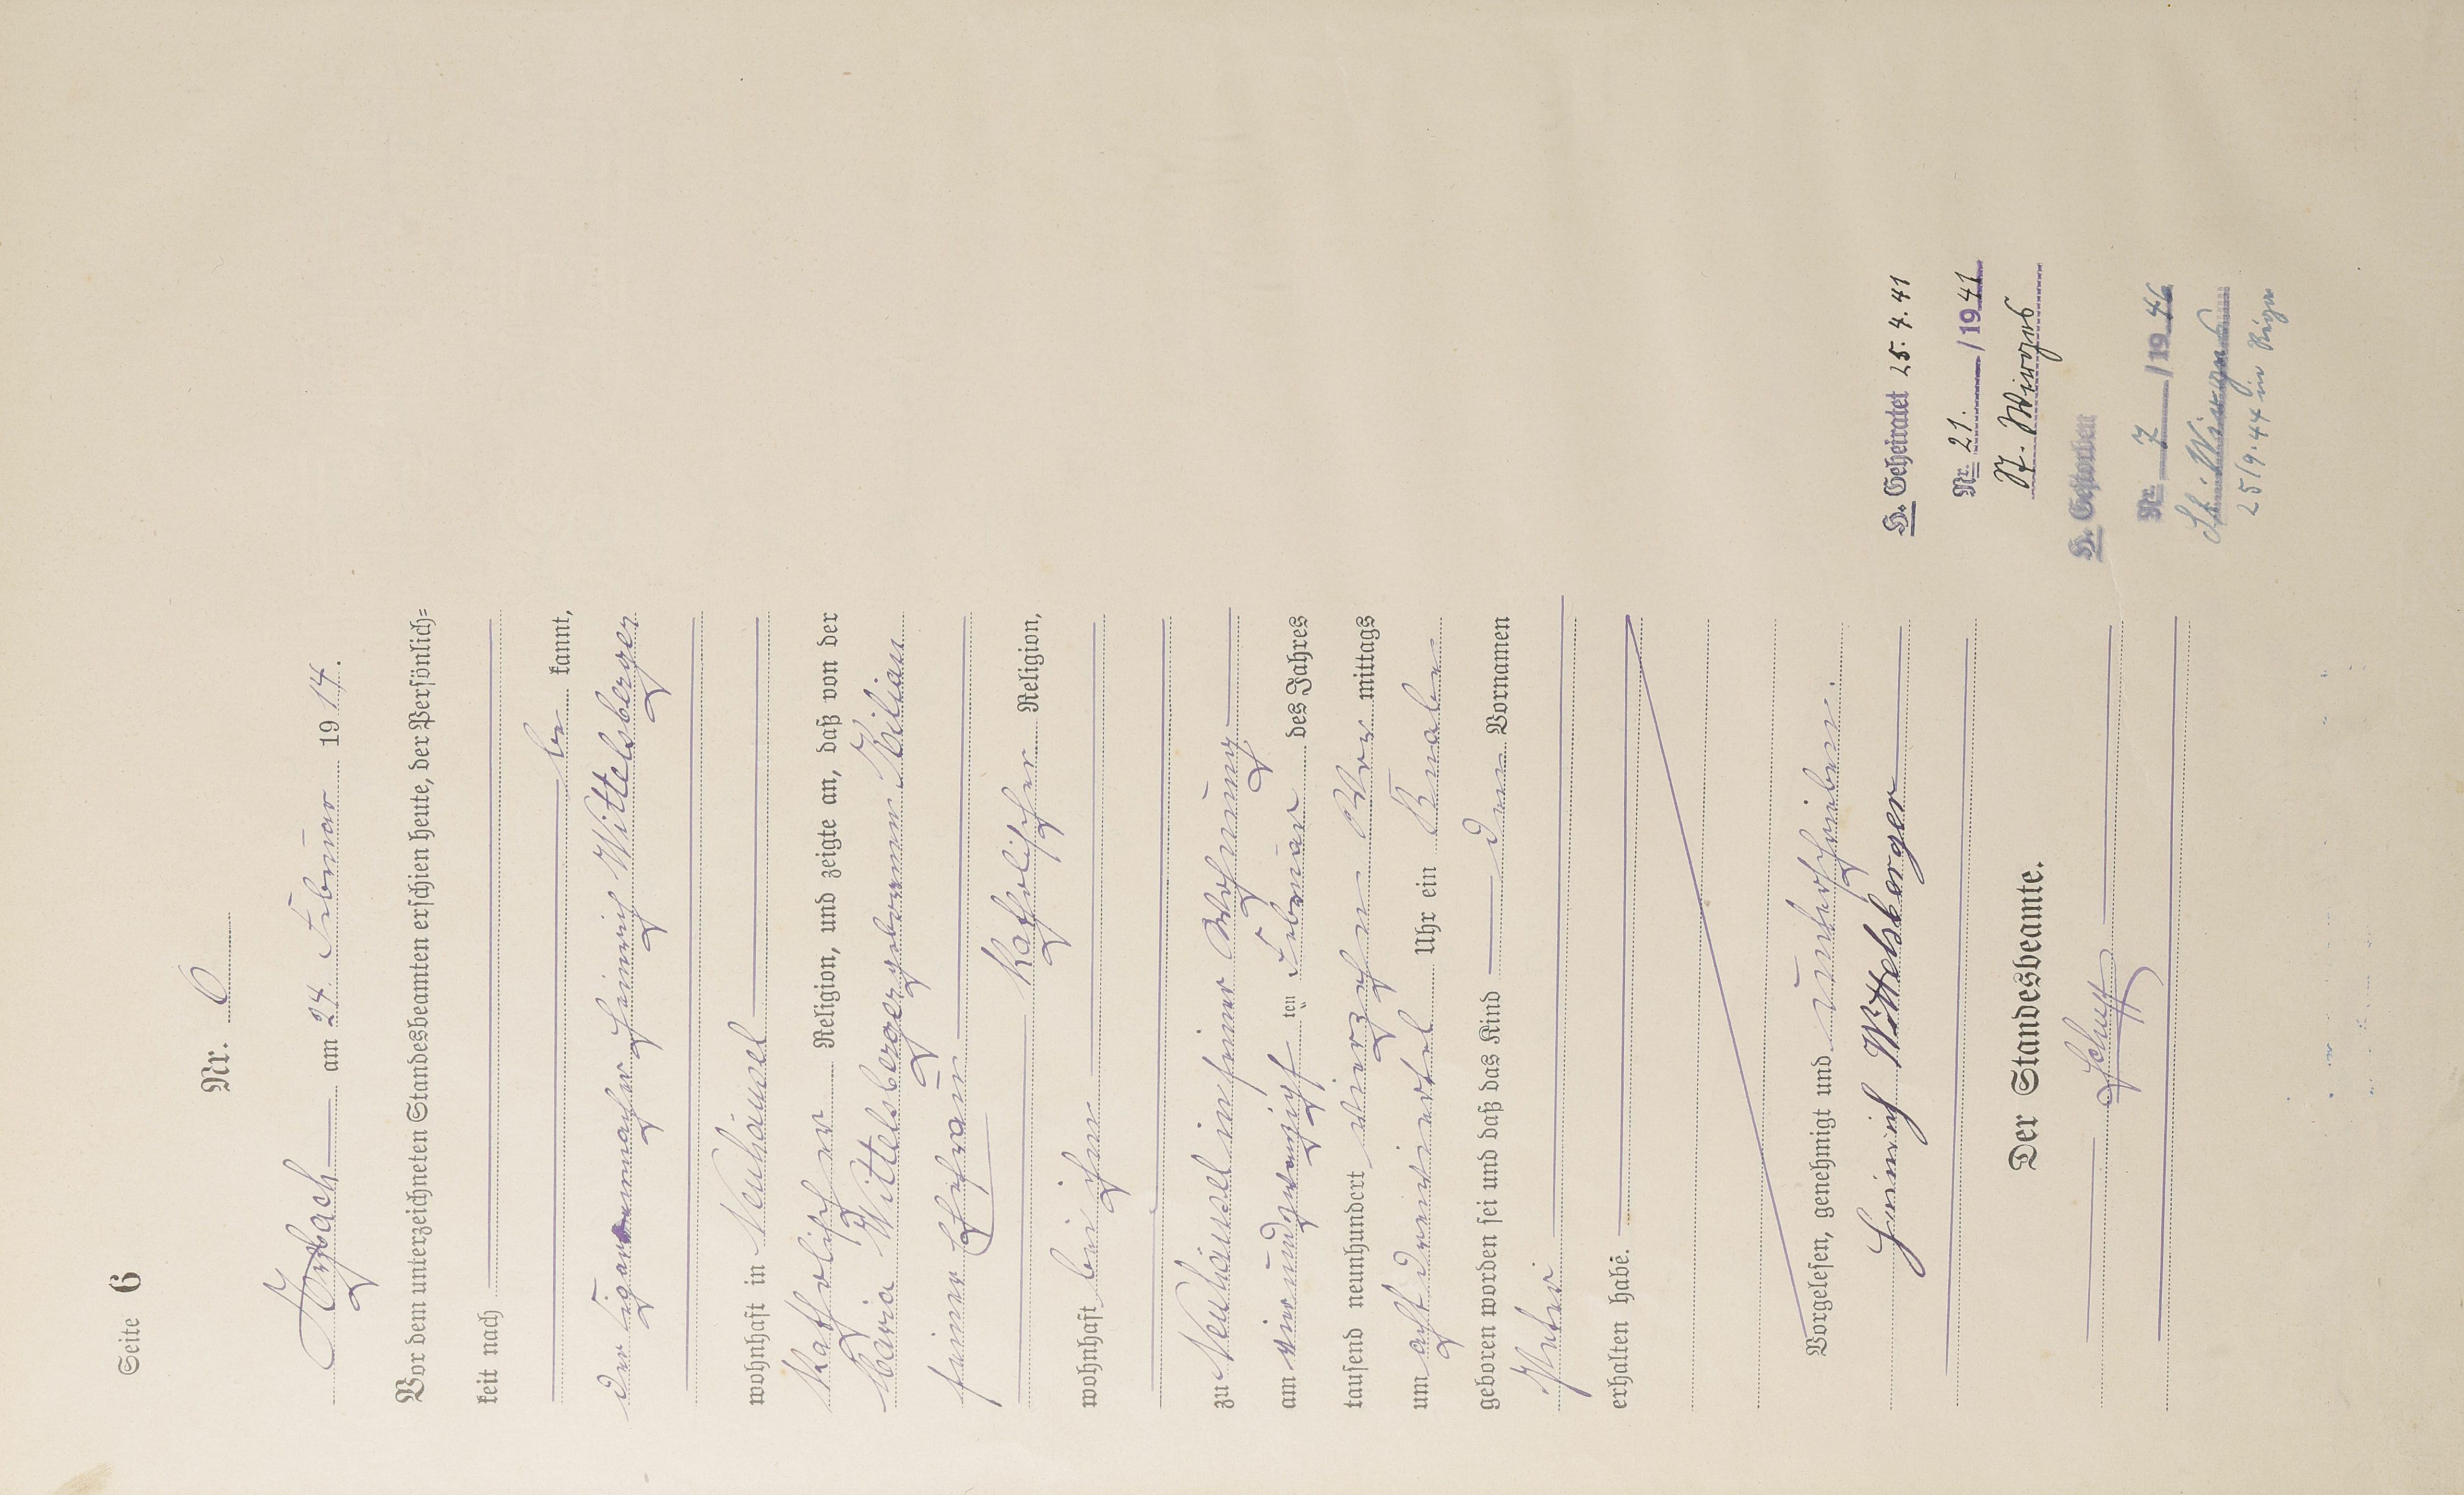 Seite 6
Nr. 6
Arzbach am 24. Februar 1914.
Vor dem unterzeichneten Standesbeamten erschien heute, der Persönlich=
keit nach
be kannt,
der Zigarrenmacher Heinrich Wittelsberger
wohnhaft in Neuhäusel
katholischer Religion, und zeigte an, daß von der
Maria Wittelsberger geborenen Kilian
seiner Ehefrau
katholischer Religion,
wohnhaft bei ihm
zu Neuhäusel in seiner Wohnung
am vierundzwanzigsten Februar des Jahres
tausend neunhundert vierzehn Vor mittags
um acht dreiviertel Uhr ein Knabe
geboren worden sei und daß das Kind den Vornamen
Peter
erhalten habe.
Vorgelesen, genehmigt und unterschrieben.
Heinrich Wittelsberger
Der Standesbeamte.
Schutt
H. Geheiratet 25. 4. 41
Nr. 21. /1941
St. Wirges
H. Gestorben
Nr. 7 /1946
St. Wirges
25/9.44 in Riga